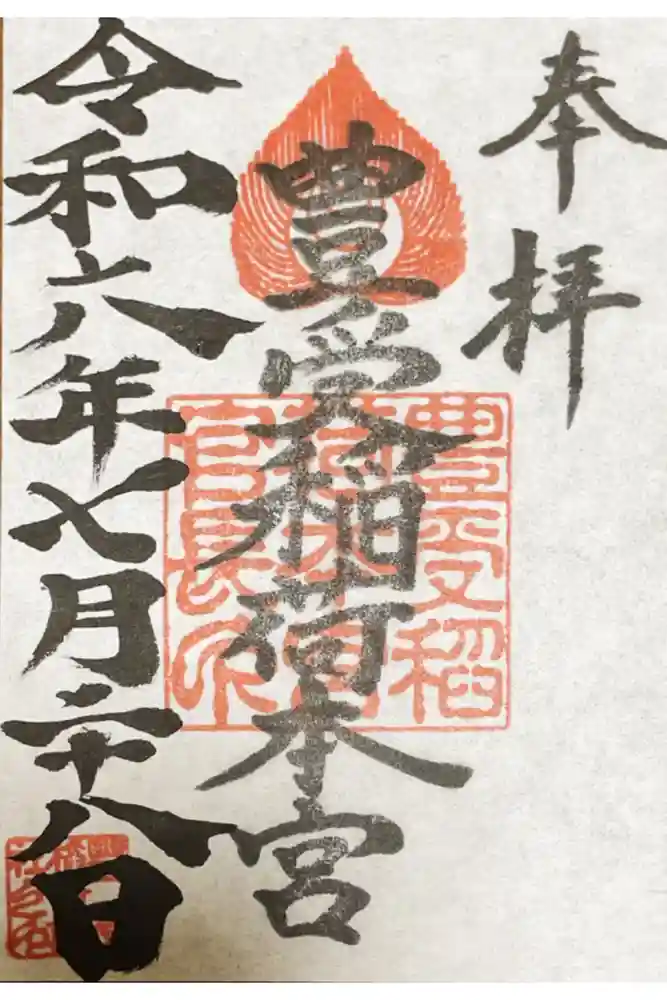 奉拝
豊受稲荷本宮
令和六年七月二十八日
豊受稲
荷本宮
宮長印